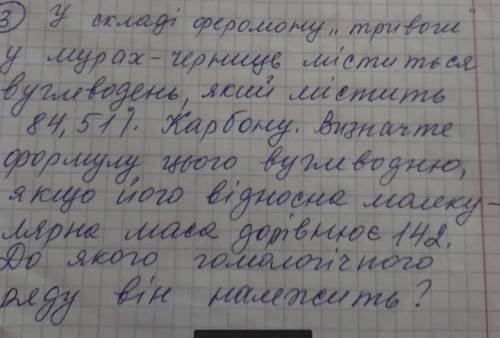 3) У складі феромону „тривоги"
у мурах-черниць міститься
вуглеводень, який містить
84,51%. Карбону. Визначте
формулу цього вуглеводню,
якщо його відносна молеку-
лярна маса дорівнює 142.
До якого гомологічного
ряду він належить?